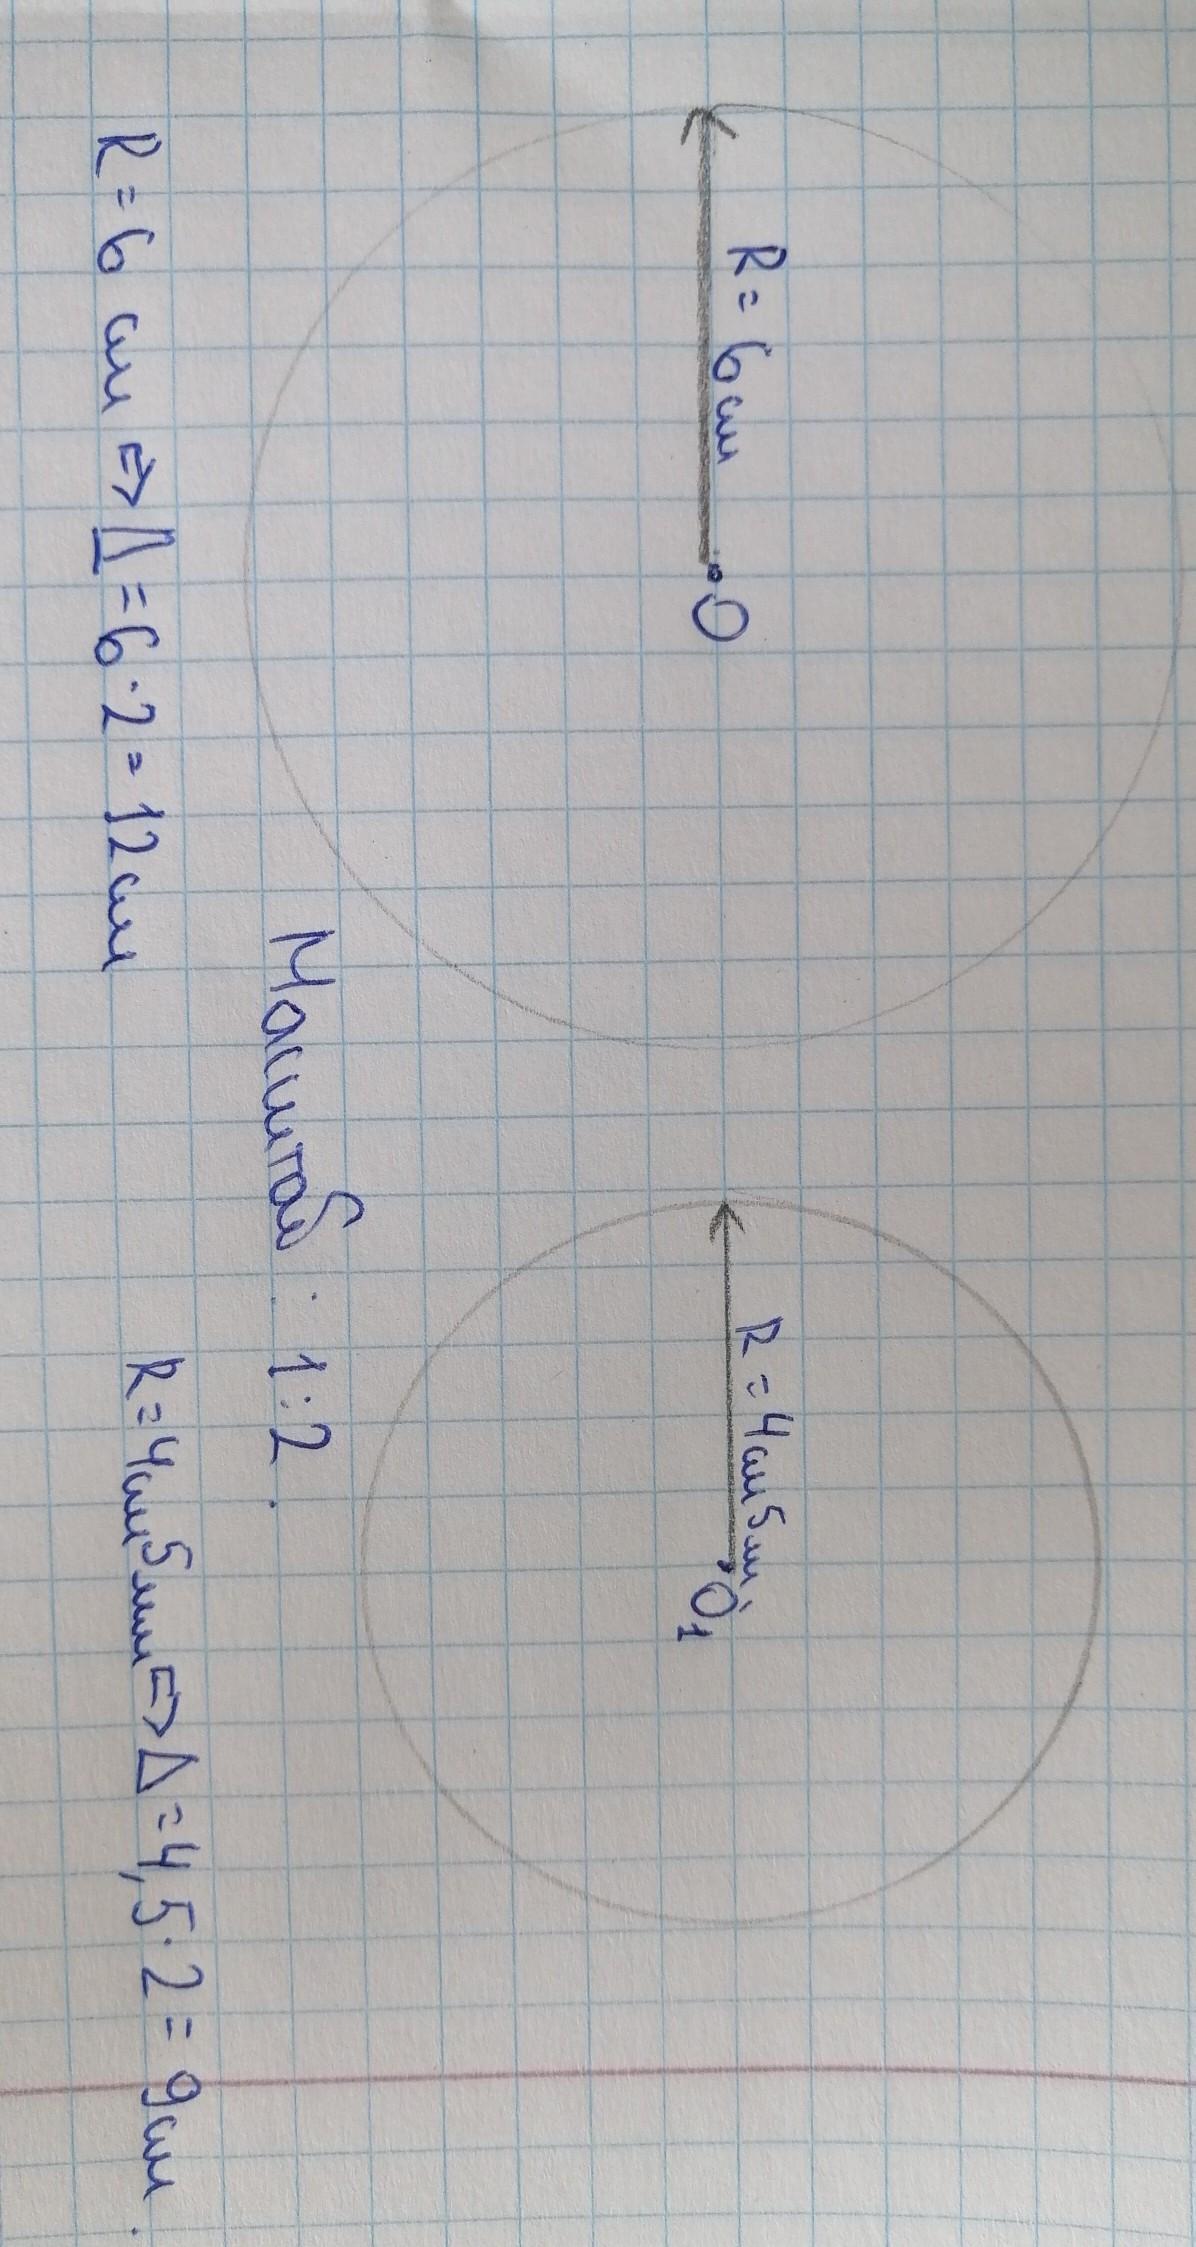 R = 6 см
O
R = 4 см 5 мм
O₁
Масштаб : 1:2.
R = 6 см => Д = 6 · 2 = 12 см
R = 4 см 5 мм => Д = 4,5 · 2 = 9 см.